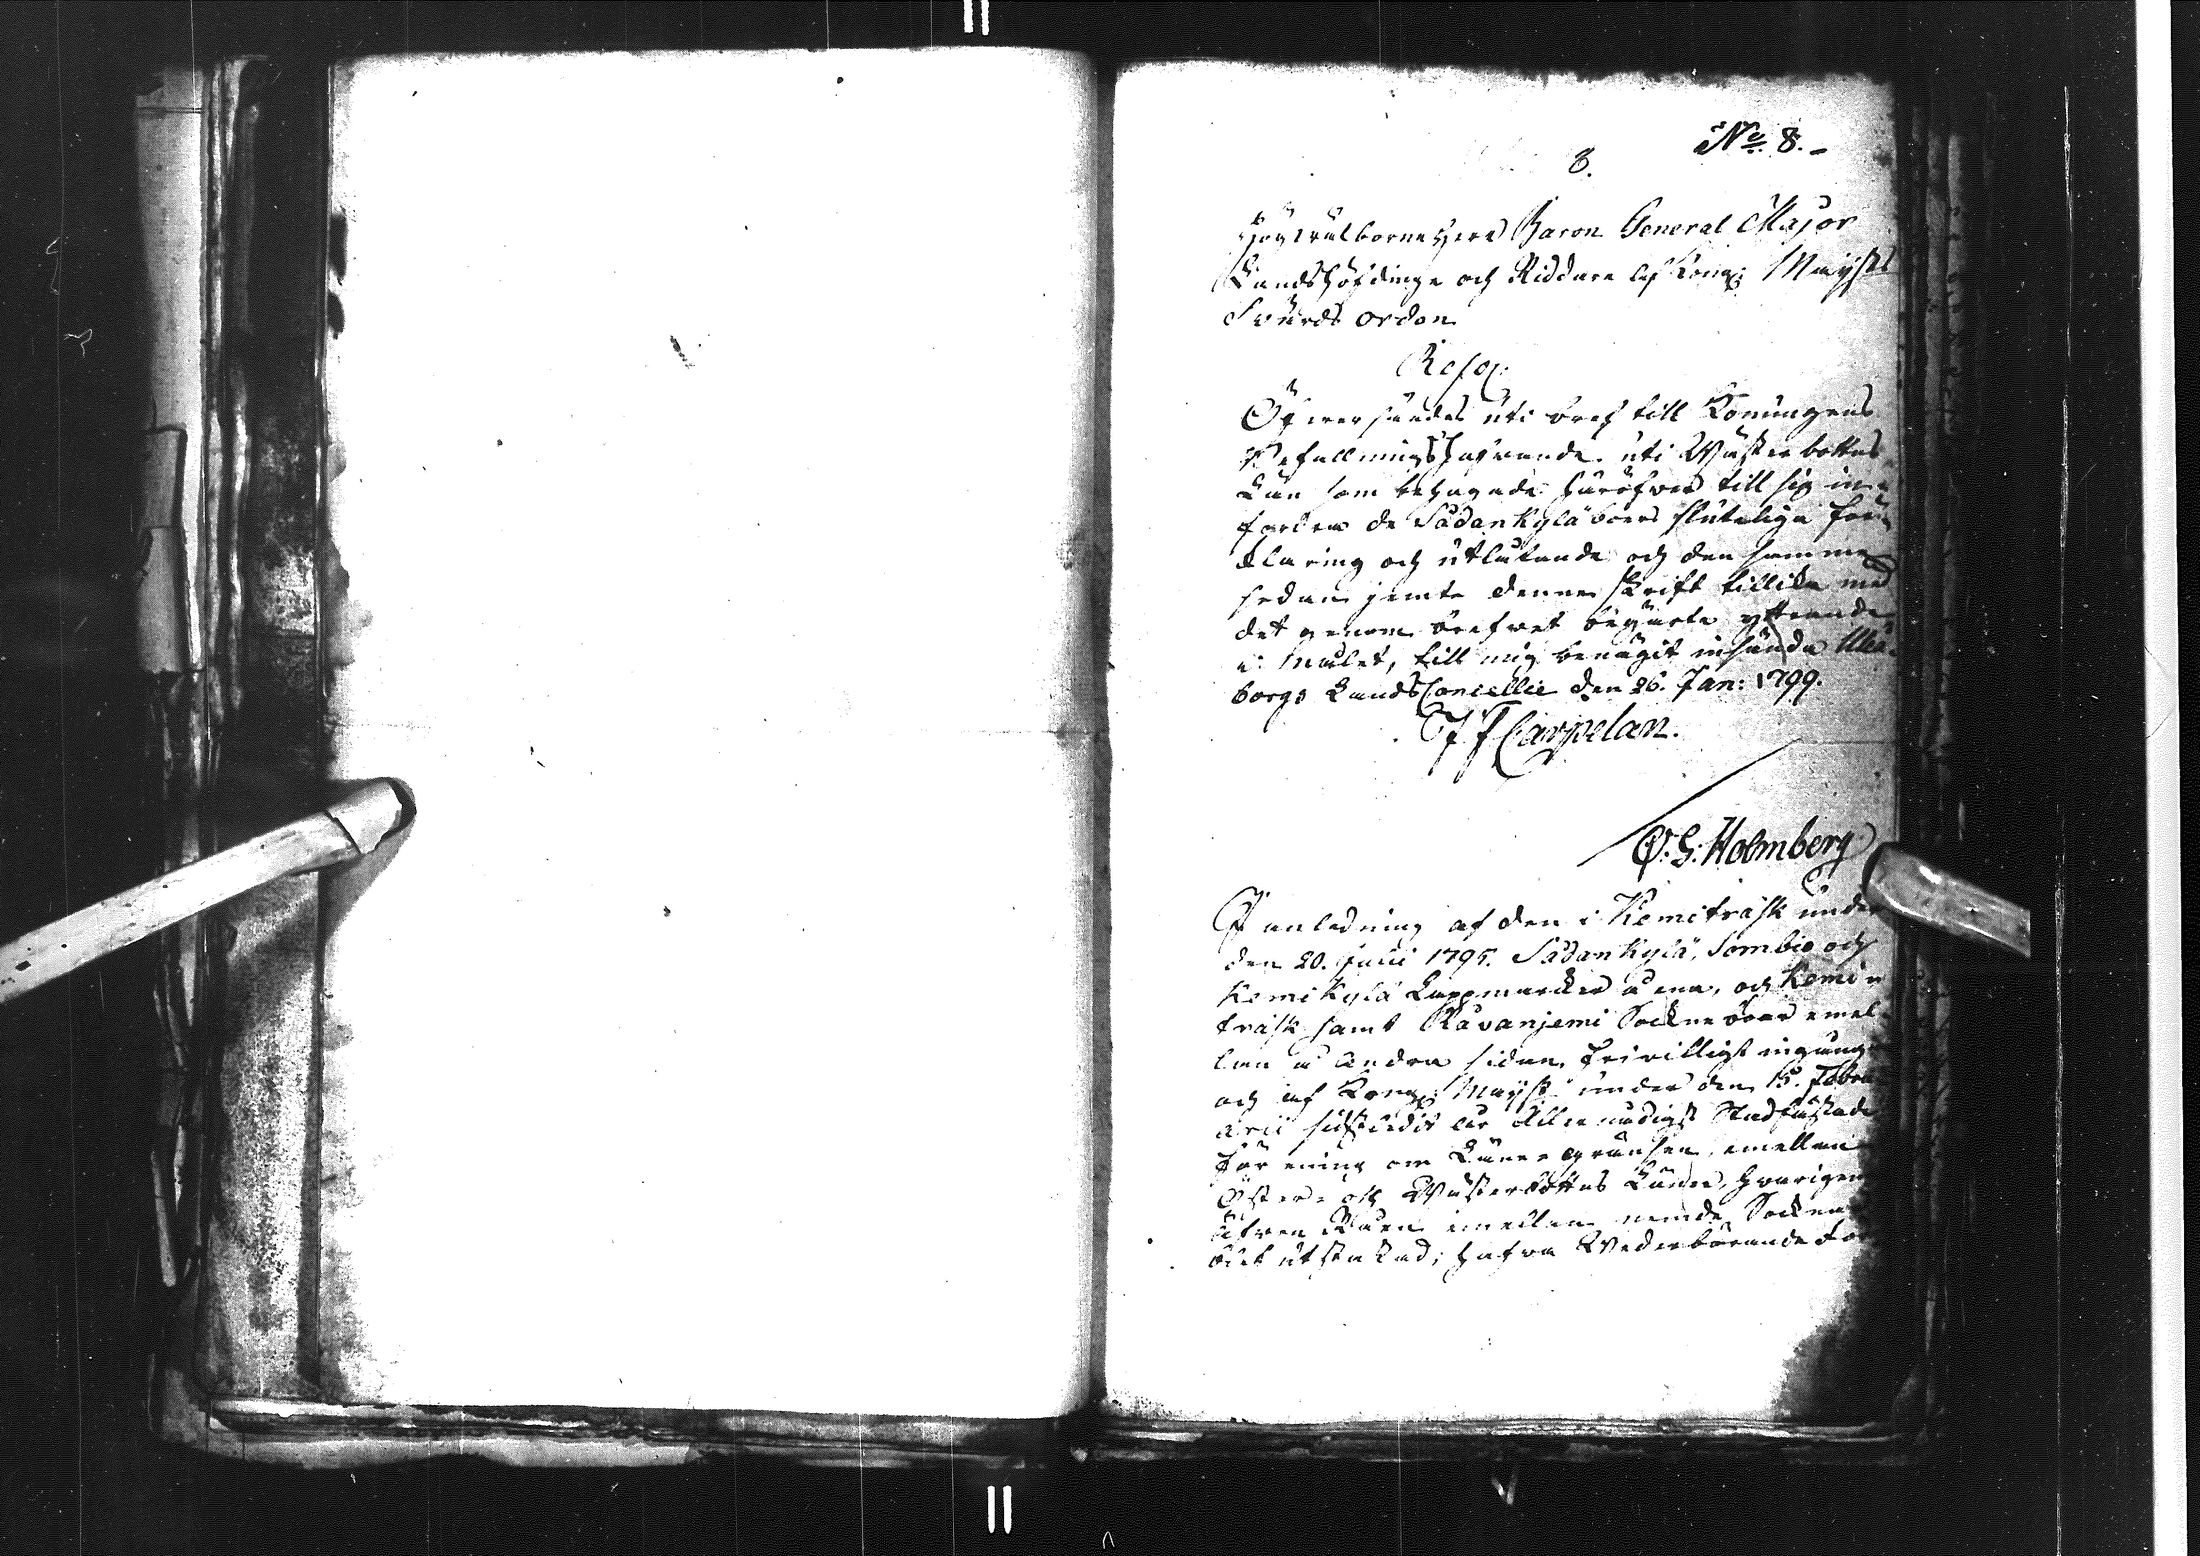 No 8.
8.
Högvälborne Herr Baron General Major
Landshöfdinge och Riddare af Kongl: Mayst:s
Svärds orden
Resol:
Öfwersändes uti bref till Konungens
Befallningshafwande uti Wästerbottns
Län som behagade häröfwer till sig in-
fordra de Sådankylä boers slutelige för-
klaring och utlåtande och den samma
sedan jemte denna skrift tillika med
det genom brefwet begärte yttrande
i målet, till mig benägit insända Uleå-
borgs LandsCancellie den 26. Jan: 1799.
Carpelan.
Holmberg
I anledning af den i Kemiträsk under
den 20. Junii 1795. Sådankylä, Sombio och
Kemikylä Lappmarker å ena, och Kemi-
träsk samt Råvanjemi Sockneboer emel-
lan å andra sidan, friwilligt ingångne
och af Kongl: Mayst: under den 15. Febru-
arii sidstledit år Allernådigst Stadfästade
förening om Länegränsen emellan
Öster- och Wästerbottns Länen, hwarigenom
äfwen Råen emellan nemde Socknar
blifvit utstakad; hafwa Wederbörande